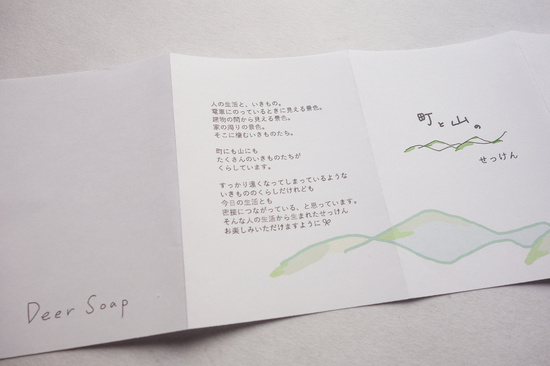 人の生活と、いきもの。
電車にのっているときに見える景色。
建物の間から見える景色。
家の周りの景色。
そこに棲むいきものたち。
町にも山にも
たくさんのいきものたちが
くらしています。
すっかり遠くなってしまっているような
いきもののくらしだけれども
今日の生活とも
密接につながっている、と思っています。
そんな人の生活から生まれたせっけん
お楽しみいただけますように
町と山の
せっけん
Deer Soap